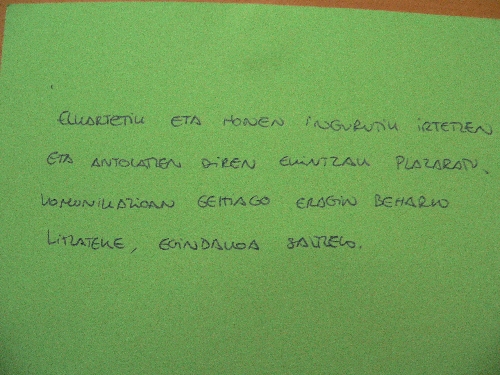 ELKARTETIK ETA HONEN INGURUTIK IRTETZEN
ETA ANTOLATZEN DIREN EKINTZAK PLAZARATU,
KOMUNIKAZIOAN GEHIAGO ERAGIN BEHARKO
LITZATEKE, EGINDAKOA